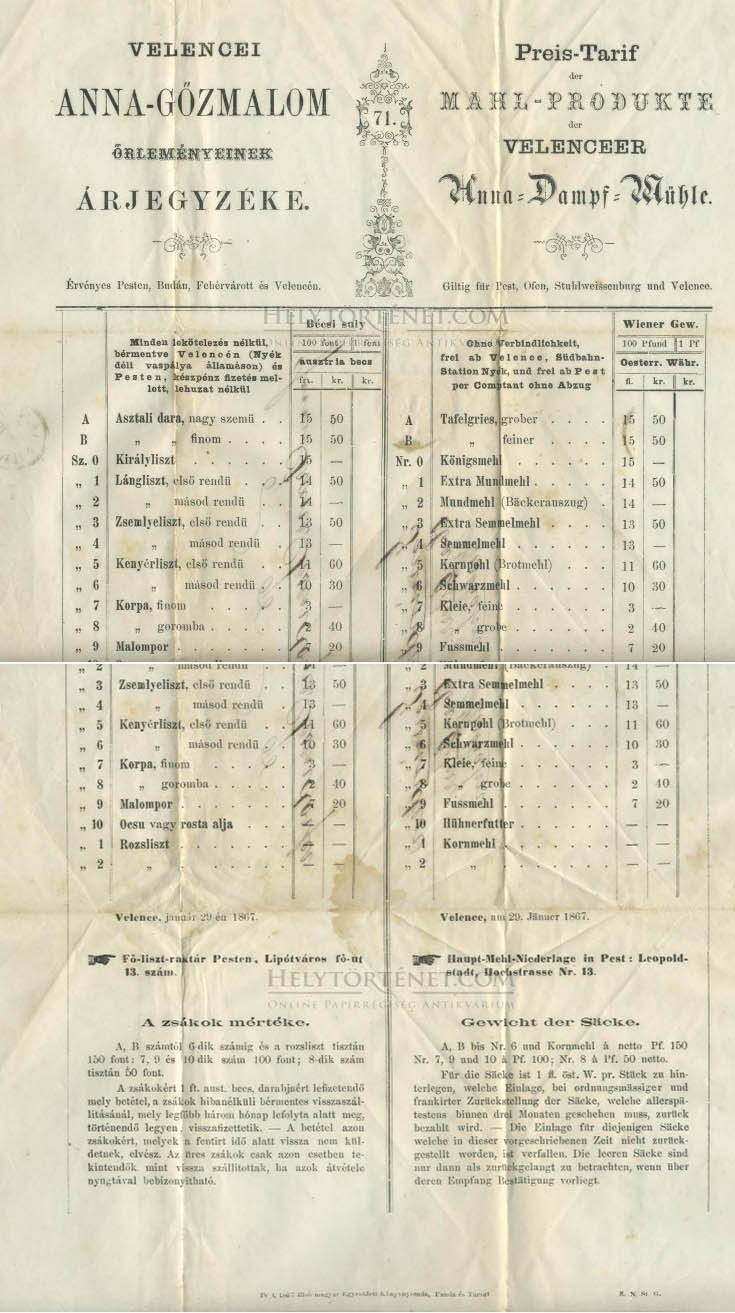 VELENCEI
ANNA-GŐZMALOM
ŐRLEMÉNYEINEK
ÁRJEGYZÉKE.
Érvényes Pesten, Budán, Fehérvárott és Velencén.
71.
Preis-Tarif
der
MAHL-PRODUKTE
der
VELENCEER
Anna-Dampf-Mühle.
Giltig für Pest, Ofen, Stuhlweissenburg und Velence.
HELYTÖRTÉNET.COM
ONLINE PAPÍRRÉGISÉG ANTIKVÁRIUM
Minden lekötelezés nélkül,
bérmentve Velencén (Nyék
déli vaspálya államáson) és
Pesten, készpénz fizetés mel-
lett, lehuzat nélkül
Bécsi suly
100 font 1 font
ausztria becs
frt. kr. kr.
A Asztali dara, nagy szemü . . 15 50
B „ „ finom . . . . 15 50
Sz. 0 Királyliszt . . . . . . 15 —
„ 1 Lángliszt, első rendü . . 14 50
„ 2 „ másod rendü . 14 —
„ 3 Zsemlyeliszt, első rendü . . 13 50
„ 4 „ másod rendü . 13 —
„ 5 Kenyérliszt, első rendü . . 11 60
„ 6 „ másod rendü . . 10 30
„ 7 Korpa, finom . . . . . 3 —
„ 8 „ goromba . . . . . 2 40
„ 9 Malompor . . . . . . . 7 20
Ohne Verbindlichkeit,
frei ab Velence, Südbahn-
Station Nyék, und frei ab Pest
per Comptant ohne Abzug
Wiener Gew.
100 Pfund 1 Pf
Oesterr. Währ.
fl. kr. kr.
A Tafelgries, grober . . . . 15 50
B „ feiner . . . . 15 50
Nr. 0 Königsmehl . . . . . . 15 —
„ 1 Extra Mundmehl . . . . 14 50
„ 2 Mundmehl (Bäckerauszug) . 14 —
„ 3 Extra Semmelmehl . . . . 13 50
„ 4 Semmelmehl . . . . . . 13 —
„ 5 Kornpohl (Brotmehl) . . . 11 60
„ 6 Schwarzmehl . . . . . . 10 30
„ 7 Kleie, feine . . . . . . 3 —
„ 8 „ grobe . . . . . . 2 40
„ 9 Fussmehl . . . . . . . 7 20
„ 2 „ másod rendü . 14 —
„ 3 Zsemlyeliszt, első rendü . . 13 50
„ 4 „ másod rendü . 13 —
„ 5 Kenyérliszt, első rendü . . 11 60
„ 6 „ másod rendü . . 10 30
„ 7 Korpa, finom . . . . . 3 —
„ 8 „ goromba . . . . . 2 40
„ 9 Malompor . . . . . . . 7 20
„ 10 Ocsu vagy rosta alja . . . — —
„ 1 Rozsliszt . . . . . . . — —
„ 2 „ . . . . . . . — —
„ 2 Mundmehl (Bäckerauszug) . 14 —
„ 3 Extra Semmelmehl . . . . 13 50
„ 4 Semmelmehl . . . . . . 13 —
„ 5 Kornpohl (Brotmehl) . . . 11 60
„ 6 Schwarzmehl . . . . . . 10 30
„ 7 Kleie, feine . . . . . . 3 —
„ 8 „ grobe . . . . . . 2 40
„ 9 Fussmehl . . . . . . . 7 20
„ 10 Hühnerfutter . . . . . . — —
„ 1 Kornmehl . . . . . . . — —
„ 2 „ . . . . . . . — —
Velence, január 29-én 1867.
Fő-liszt-raktár Pesten, Lipótváros fő-ut
13. szám.
A zsákok mértéke.
A, B számtól 6-dik számig és a rozsliszt tisztán
150 font: 7, 9 és 10-dik szám 100 font; 8-dik szám
tisztán 50 font.
A zsákokért 1 ft. aust. becs, darabjaért lefizetendő
mely betétel, a zsákok hibanélküli bérmentes visszaszál-
litásánál, mely legfőbb három hónap lefolyta alatt meg,
történendő legyen, visszafizettetik. — A betétel azon
zsákokért, melyek a fentirt idő alatt vissza nem kül-
detnek, elvész. Az üres zsákok csak azon esetben te-
kintendők mint vissza szállitottak, ha azok átvétele
nyugtával bebizonyitható.
Velence, am 29. Jänner 1867.
Haupt-Mehl-Niederlage in Pest: Leopold-
stadt, Hochstrasse Nr. 13.
HELYTÖRTÉNET.COM
ONLINE PAPÍRRÉGISÉG ANTIKVÁRIUM
Gewicht der Säcke.
A, B bis Nr. 6 und Kornmehl à netto Pf. 150
Nr. 7, 9 und 10 à Pf. 100; Nr. 8 à Pf. 50 netto.
Für die Säcke ist 1 fl. öst. W. pr. Stück zu hin-
terlegen, welche Einlage, bei ordnungsmässiger und
frankirter Zurückstellung der Säcke, welche allerspä-
testens binnen drei Monaten geschehen muss, zurück
bezahlt wird. — Die Einlage für diejenigen Säcke
welche in dieser vorgeschriebenen Zeit nicht zurück-
gestellt worden, ist verfallen. Die leeren Säcke sind
nur dann als zurückgelangt zu betrachten, wenn über
deren Empfang Bestätigung vorliegt.
1867 Első magyar Egyesületi Könyvnyomda,
E. N. St. G.